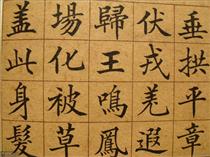 垂拱平章
伏戎羌遐
歸王鳴鳳
場化被草
盖此身髮